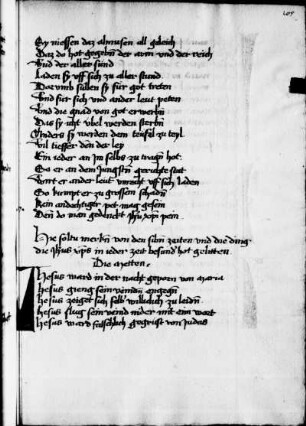 Sy niessen daz almusen all gleich
Daz do hot gegeben der arm und der reich
Und der aller sund
Laden sy uff sich zu aller stund
Dar umb sullen sy fur got treten
Und fur sich und ander leut peten
Und die gnad von got erwerben
Das sy nicht ubel werden sterben
Anders sy werden dem teufel zu teyl
Vil tieffer den der ley
Ein jeder an jm selbs zu tragen hot
So er an dem jungsten gericht stat
Wirt er ander leut uff sich laden
So kumpt er zu grossem schaden
Kein andechtiger pet mag gesein
Den do man gedenckt jhesu xpi pein
Hie soltu mercken von den siben zeiten und die ding
die jhesus xps in jeder zeit besund hot geliten
Die metten
Jhesus ward in der nacht geporn von maria
Jhesus gieng sein veinden engegen
Jhesus zeiget sich selb williclich zu leiden
Jhesus slug sein veind nider mit eim wort
Jhesus ward felschlich gegrust von judas